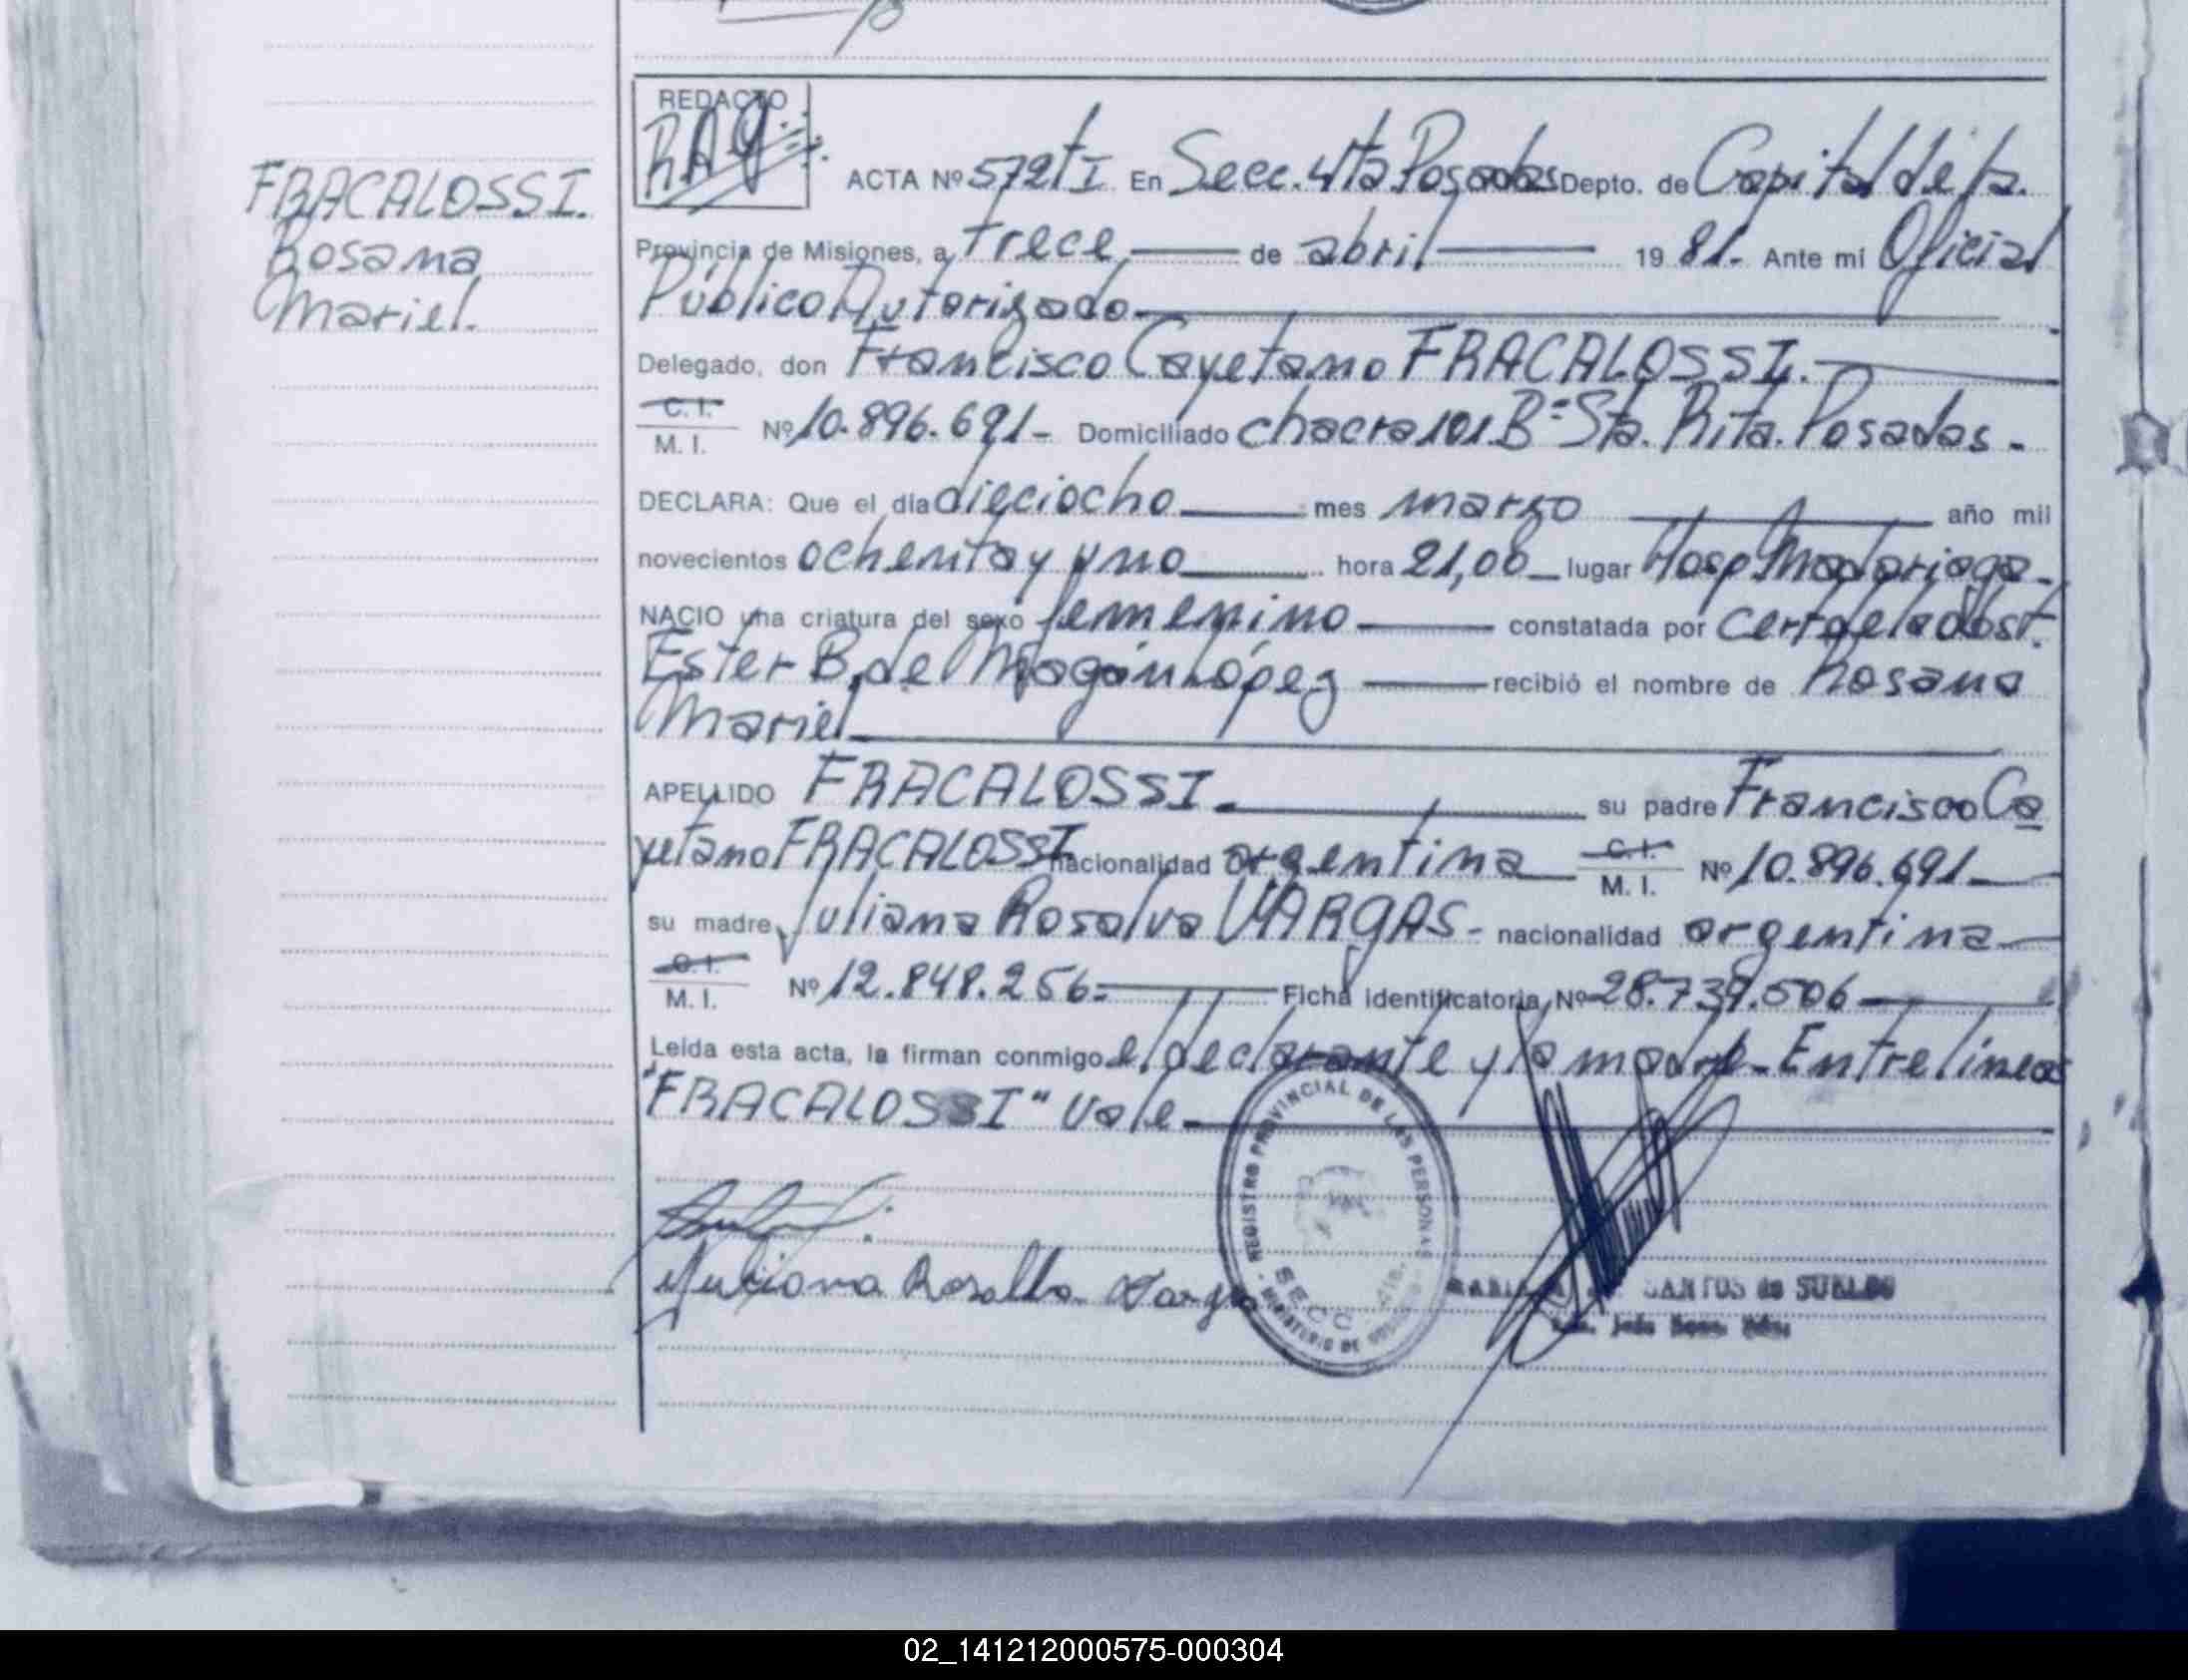 FRACALOSSI.
Rosana
Mariel.
REDACTO
ACTA Nº 572 tI En Secc. 4ta Posadas Depto. de Capital de la
Provincia de Misiones, a trece de abril 1981. Ante mí Oficial
Público Autorizado
Delegado, don Francisco Cayetano FRACALOSSI.
C. I.
M. I. Nº 10.896.691- Domiciliado chacra 101 Bº Sta. Rita. Posadas.
DECLARA: Que el día dieciocho mes marzo año mil
novecientos ochenta y uno hora 21,00 lugar Hosp Madariaga
NACIO una criatura del sexo femenino constatada por cert de la obst.
Ester B. de López recibió el nombre de Rosana
Mariel
APELLIDO FRACALOSSI. su padre Francisco Ca
yetano FRACALOSSI nacionalidad argentina C. I.
M. I. Nº 10.896.691
su madre, Juliana Rosalva VARGAS- nacionalidad argentina
C. I.
M. I. Nº 12.848.256- Ficha identificatoria Nº 28.739.506
Leída esta acta, la firman conmigo el declarante y la madre. Entre líneas
"FRACALOSSI" Vale
REGISTRO PROVINCIAL DE LAS PERSONAS
SECC. 4ta.
Juliana Rosalba Vargas
SANTOS de SUELDO
02_141212000575-000304